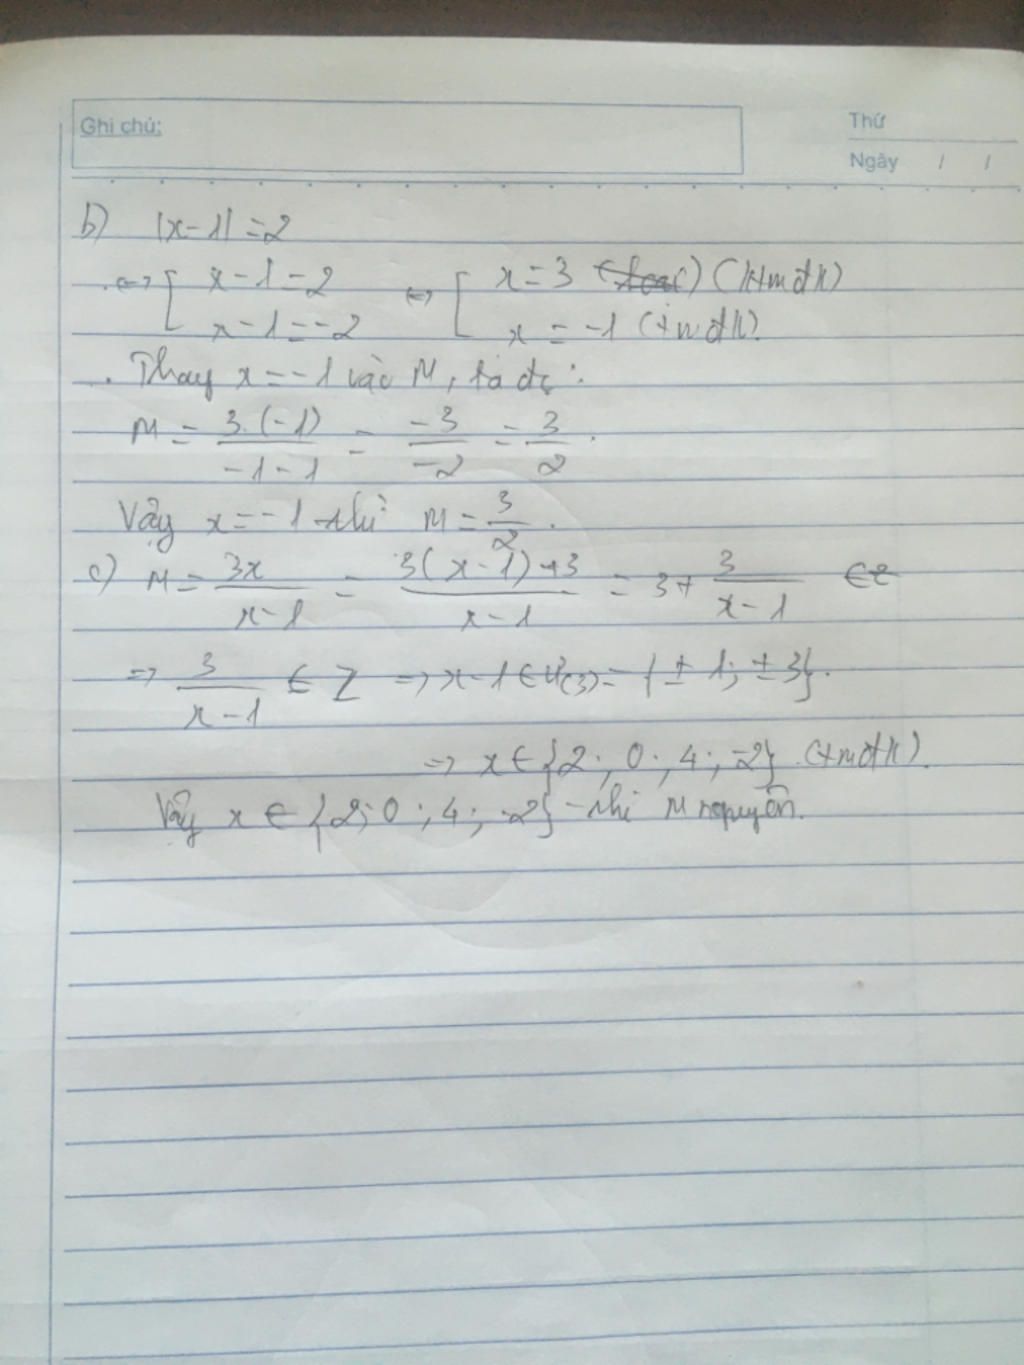 Ghi chú:
Thứ
Ngày / /
b) |x-1| = 2
<=> [ x-1=2 <=> [ x = 3 (loại) (ktmđk)
x-1=-2 x = -1 (tmđk).
Thay x=-1 vào M, ta đc:
M = 3.(-1)/-1-1 = -3/-2 = 3/2.
Vậy x=-1 thì M = 3/2.
c) M = 3x/x-1 = 3(x-1)+3/x-1 = 3+ 3/x-1 ∈Z
=> 3/x-1 ∈ Z => x-1 ∈ Ư(3) = {±1; ±3}.
=> x ∈ {2; 0; 4; -2} (tmđk).
Vậy x ∈ {2; 0; 4; -2} thì M nguyên.